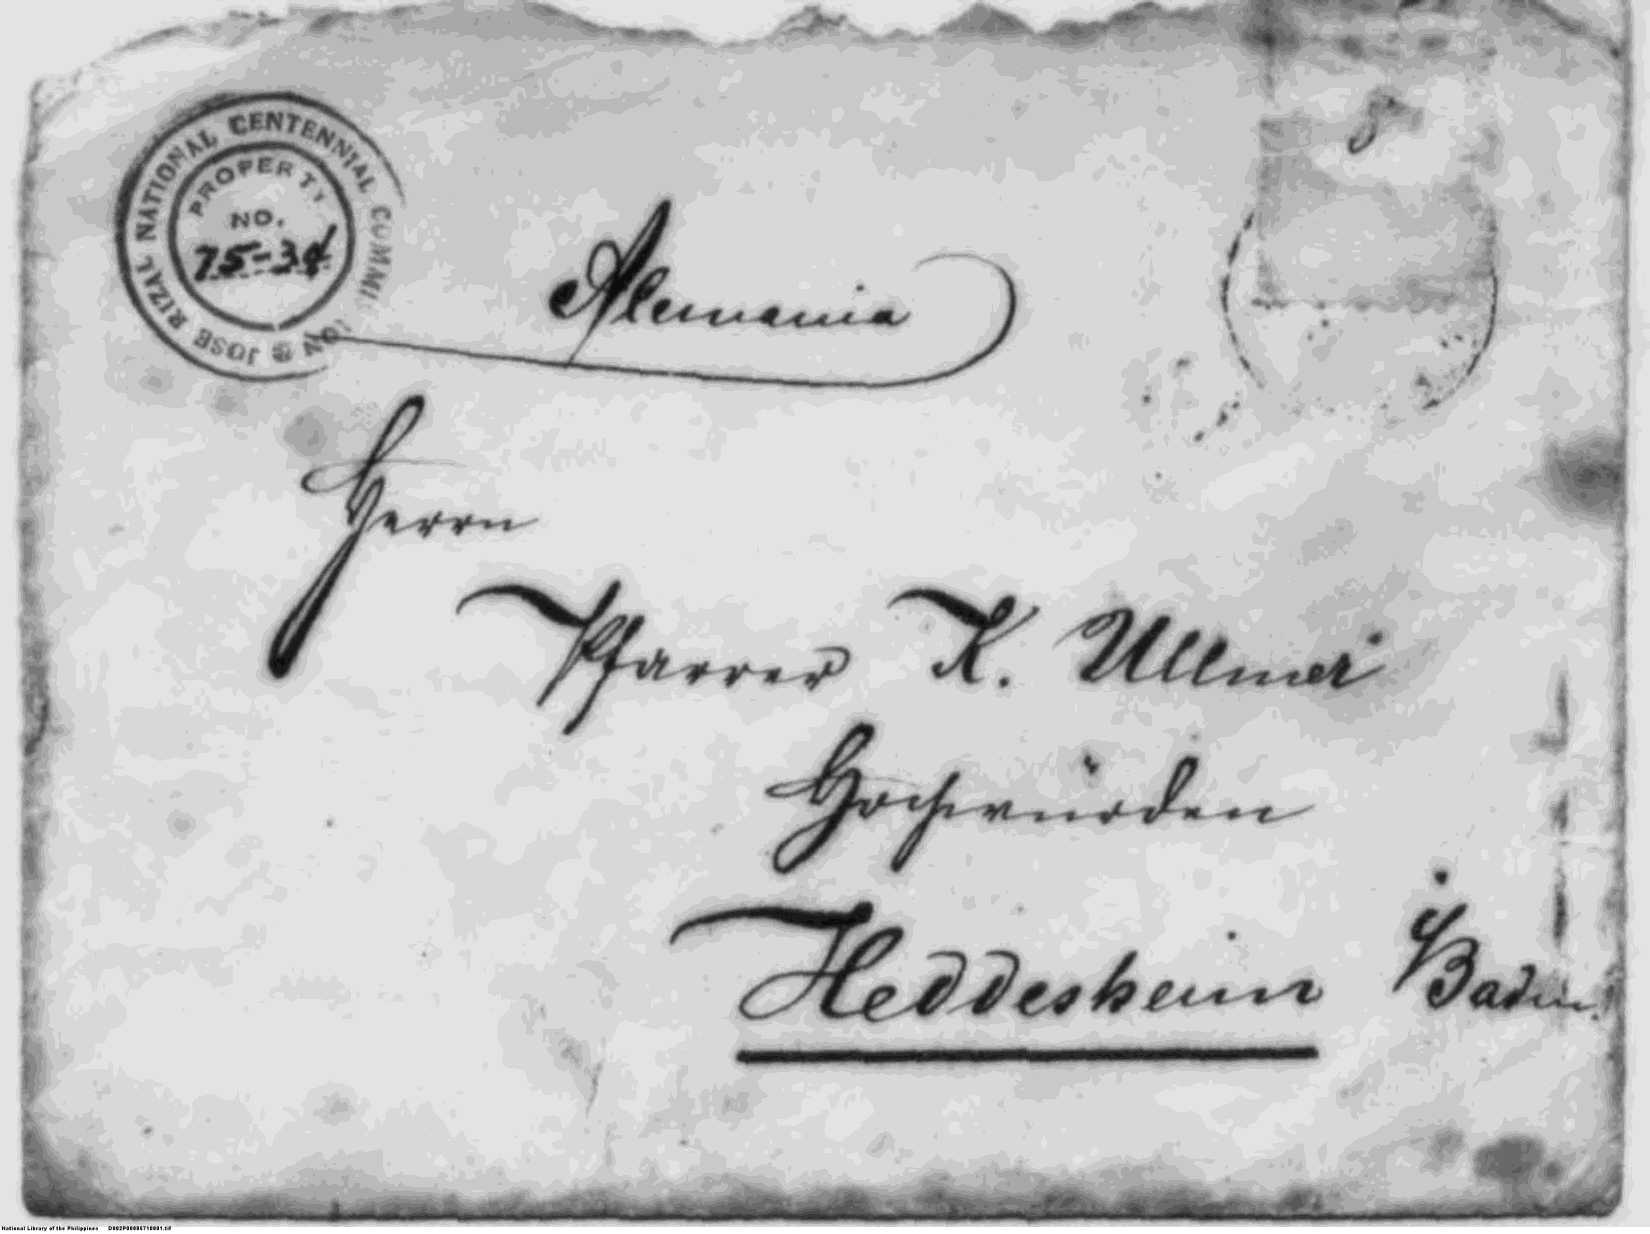 JOSE RIZAL NATIONAL CENTENNIAL COMMI ION
PROPERTY
NO.
75-34
Alemania
Herrn
Pfarrer K. Ullmer
Hochwürden
Heddesheim Baden.
National Library of the Philippines